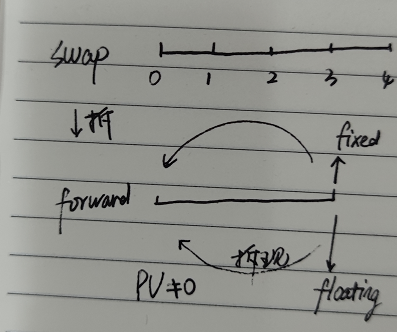 swap
0 1 2 3 4
↓拆
fixed
forward
折现
PV≠0
floating